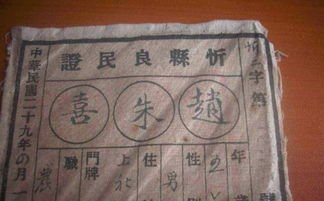 忻縣良民證
忻二字第
趙朱喜
年歲
五
性別
男
住
上社
門牌
職
農
中華民國二十九年の月一